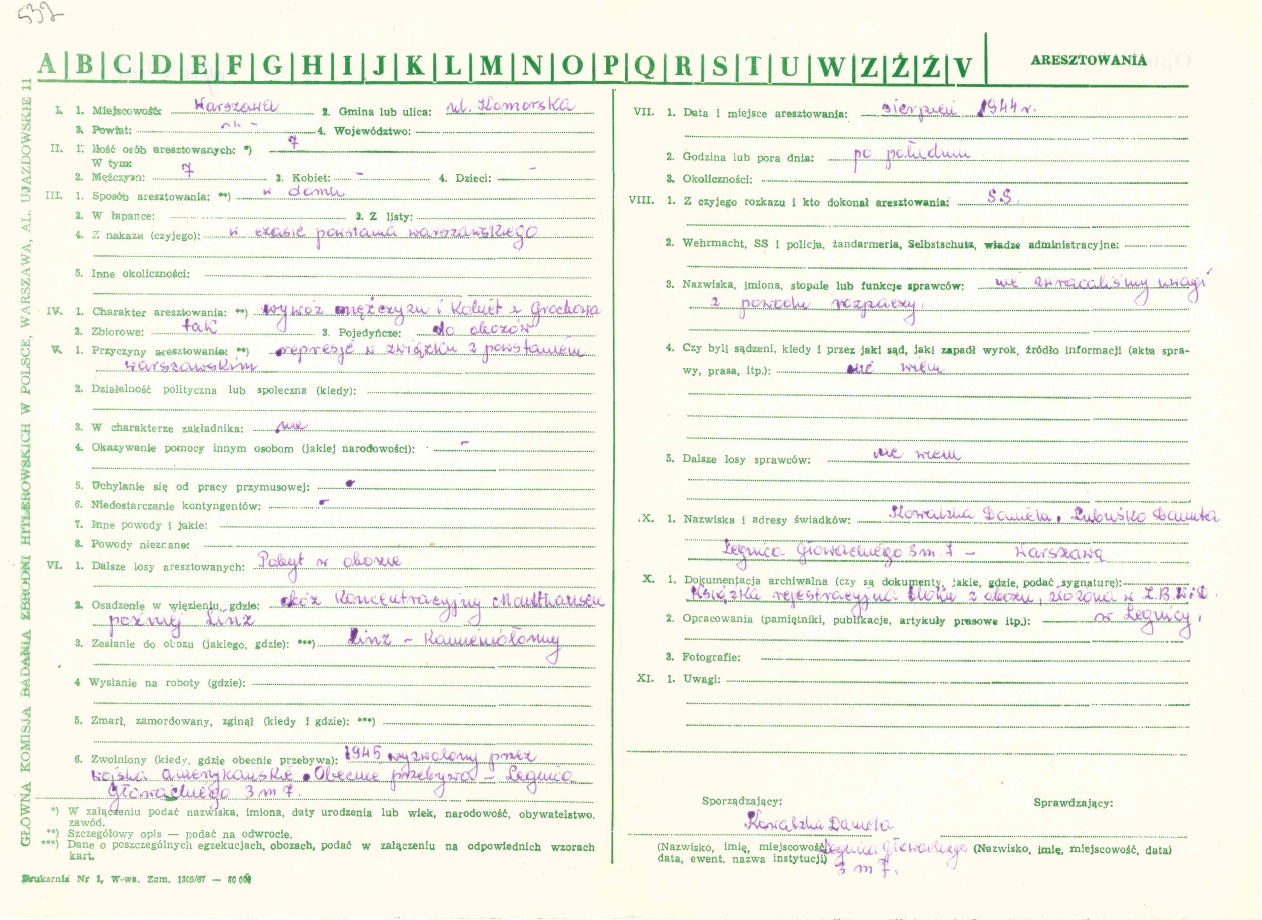 532
A B C D E F G H I J K L M N O P Q R S T U W Z Ż Ź V
ARESZTOWANIA
GŁÓWNA KOMISJA BADANIA ZBRODNI HITLEROWSKICH W POLSCE, WARSZAWA, AL. UJAZDOWSKIE 11
I. 1. Miejscowość: Warszawa 2. Gmina lub ulica: ul. Komorska
3. Powiat: 4. Województwo:
II. 1. Ilość osób aresztowanych: *) 7
W tym:
2. Mężczyzn: 7 3. Kobiet: - 4. Dzieci: -
III. 1. Sposób aresztowania: **) w domu
2. W łapance: 3. Z listy:
4. Z nakazu (czyjego): w czasie powstania warszawskiego
5. Inne okoliczności:
IV. 1. Charakter aresztowania: **) wywóz mężczyzn i kobiet z Grochowa
2. Zbiorowe: tak 3. Pojedyńcze: do obozów
V. 1. Przyczyny aresztowania: **) represje w związku z powstaniem
warszawskim
2. Działalność polityczna lub społeczna (kiedy):
3. W charakterze zakładnika: nie
4. Okazywanie pomocy innym osobom (jakiej narodowości): -
5. Uchylanie się od pracy przymusowej: -
6. Niedostarczanie kontyngentów: -
7. Inne powody i jakie:
8. Powody nieznane:
VI. 1. Dalsze losy aresztowanych: Pobyt w obozie
2. Osadzenie w więzieniu, gdzie: obóz koncentracyjny Mauthausen
poźniej Linz
3. Zesłanie do obozu (jakiego, gdzie): ***) Linz - Kamieniołomy
4 Wysłanie na roboty (gdzie):
5. Zmarł, zamordowany, zginął (kiedy i gdzie): ***)
6. Zwolniony (kiedy, gdzie obecnie przebywa): 1945 wyzwolony przez
wojska amerykańskie. Obecnie przebywa - Legnica
Głowackiego 3 m 7.
*) W załączeniu podać nazwiska, imiona, daty urodzenia lub wiek, narodowość, obywatelstwo.
zawód.
**) Szczegółowy opis — podać na odwrocie.
***) Dane o poszczególnych egzekucjach, obozach, podać w załączeniu na odpowiednich wzorach
kart.
Drukarnia Nr 1, W-wa. Zam. 1309/67 — 80 000
VII. 1. Data i miejsce aresztowania: sierpień 1944 r.
2. Godzina lub pora dnia: po południu
3. Okoliczności:
VIII. 1. Z czyjego rozkazu i kto dokonał aresztowania: SS.
2. Wehrmacht, SS i policja, żandarmeria, Selbstschutz, władze administracyjne:
3. Nazwiska, imiona, stopnie lub funkcje sprawców: nie zwracaliśmy uwagi
z powodu rozpaczy.
4. Czy byli sądzeni, kiedy i przez jaki sąd, jaki zapadł wyrok, źródło informacji (akta spra-
wy, prasa, itp.): nie wiem
5. Dalsze losy sprawców: nie wiem
IX. 1. Nazwiska i adresy świadków: Kowalska Daniela, Danuta
Legnica Głowackiego 3 m. 7 - Warszawa
X. 1. Dokumentacja archiwalna (czy są dokumenty, jakie, gdzie, podać sygnaturę):
Książka rejestracyjna bloku z obozu, złożona w Z.B.W.i D.
2. Opracowania (pamiętniki, publikacje, artykuły prasowe itp.): w Legnicy.
3. Fotografie:
XI. 1. Uwagi:
Sporządzający: Sprawdzający:
Kowalska Daniela
(Nazwisko, imię, miejscowość, Legnica Głowackiego (Nazwisko, imię, miejscowość, data)
data, ewent. nazwa instytucji) 3 m 7.